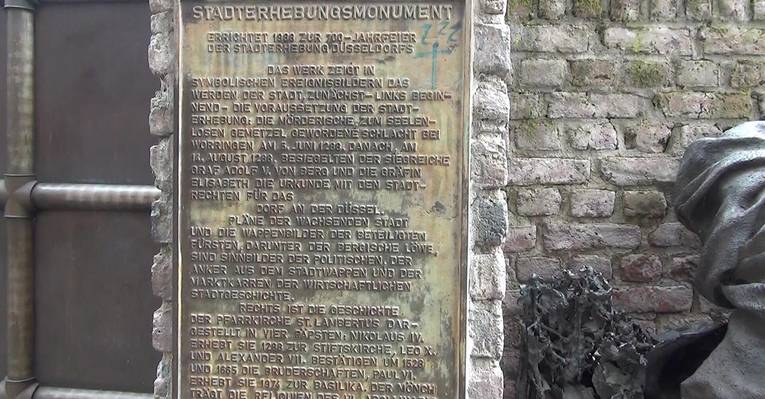 STADTERHEBUNGSMONUMENT
ERRICHTET 1988 ZUR 700-JAHRFEIER
DER STADTERHEBUNG DÜSSELDORFS
DAS WERK ZEIGT IN
SYMBOLISCHEN EREIGNISBILDERN DAS
WERDEN DER STADT, ZUNÄCHST - LINKS BEGIN-
NEND - DIE VORAUSSETZUNG DER STADT-
ERHEBUNG: DIE MÖRDERISCHE, ZUM SEELEN-
LOSEN GEMETZEL GEWORDENE SCHLACHT BEI
WORRINGEN AM 5. JUNI 1288. DANACH, AM
14. AUGUST 1288, BESIEGELTEN DER SIEGREICHE
GRAF ADOLF V. VON BERG UND DIE GRÄFIN
ELISABETH DIE URKUNDE MIT DEN STADT-
RECHTEN FÜR DAS
DORF AN DER DÜSSEL.
PLÄNE DER WACHSENDEN STADT
UND DIE WAPPENBILDER DER BETEILIGTEN
FÜRSTEN, DARUNTER DER BERGISCHE LÖWE,
SIND SINNBILDER DER POLITISCHEN, DER
ANKER AUS DEM STADTWAPPEN UND DER
MARKTKARREN DER WIRTSCHAFTLICHEN
STADTGESCHICHTE.
RECHTS IST DIE GESCHICHTE
DER PFARRKIRCHE ST. LAMBERTUS DAR-
GESTELLT IN VIER PÄPSTEN: NIKOLAUS IV.
ERHEBT SIE 1288 ZUR STIFTSKIRCHE, LEO X.
UND ALEXANDER VII. BESTÄTIGEN UM 1528
UND 1665 DIE BRUDERSCHAFTEN, PAUL VI.
ERHEBT SIE 1974 ZUR BASILIKA. DER MÖNCH
TRÄGT DIE RELIQUIEN DES HL. APOLLINARIS